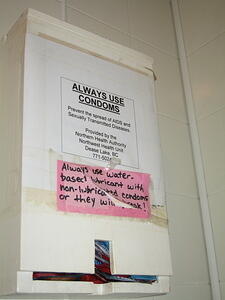 ALWAYS USE
CONDOMS
Prevent the spread of AIDS and
Sexually Transmitted Diseases.
Provided by the
Northern Health Authority
Northwest Health Unit
Dease Lake, BC
Always use water-
based lubricant with
non-lubricated condoms
or they will break!